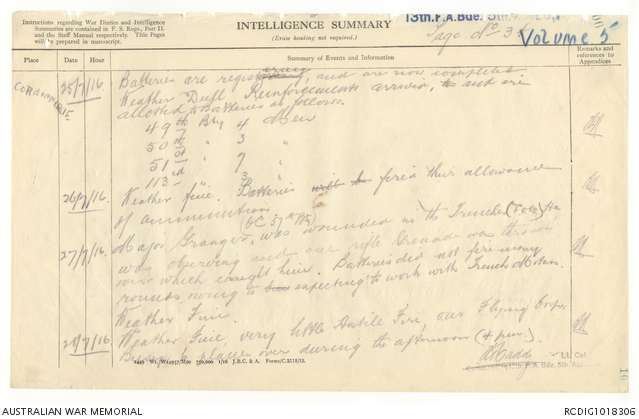 Instructions regarding War Diaries and Intelligence
Summaries are contained in F. S. Regs., Part II.
and the Staff Manual respectively. Title Pages
will be prepared in manuscript.
INTELLIGENCE SUMMARY
(Erase heading not required.)
13th. F.A. Bde.
Page No 3
Volume 5
Place
Date
Hour
Summary of Events and Information
Remarks and
references to
Appendices
25/7/16.
Batteries are registering, and are now complete
Weather Dull. Reinforcements arrived, and are
allotted to Batteries as follows.
49th Bty 4 Men
50th " 3 "
51st " 7 "
113rd " 3 "
26/7/16.
Weather fine. Batteries fired their allowance
of ammunition
27/7/16.
Major Granger, was wounded in the Trenches He
was observing and one rifle Grenade was thrown
over which caught him. Batteries did not fire many
rounds owing to expecting to work with Trench Mortars.
Weather Fine.
28/7/16.
Weather Fine, very little Hostile Fire, our Flying Corps
Band played over during the afternoon
Lt. Col
F.A. Bde.
AUSTRALIAN WAR MEMORIAL
RCDIG1018306